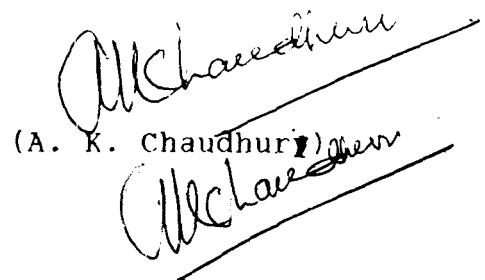 AKChaudhuri
(A. K. Chaudhuri)
AKChaudhuri